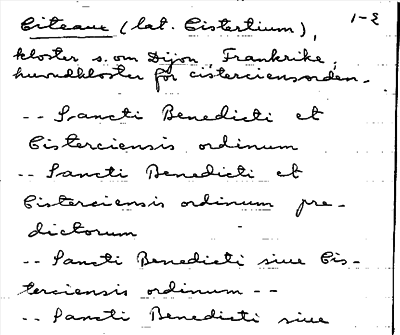 Citeaux (lat. Cistertium), 1-2
kloster s. om Dijon, Frankrike,
huvudkloster för cisterciensorden.
-- Sancti Benedicti et
Cisterciensis ordinum
-- Sancti Benedicti et
Cisterciensis ordinum pre-
dictorum
-- Sancti Benedicti siue Cis-
terciensis ordinum --
-- Sancti Benedicti siue